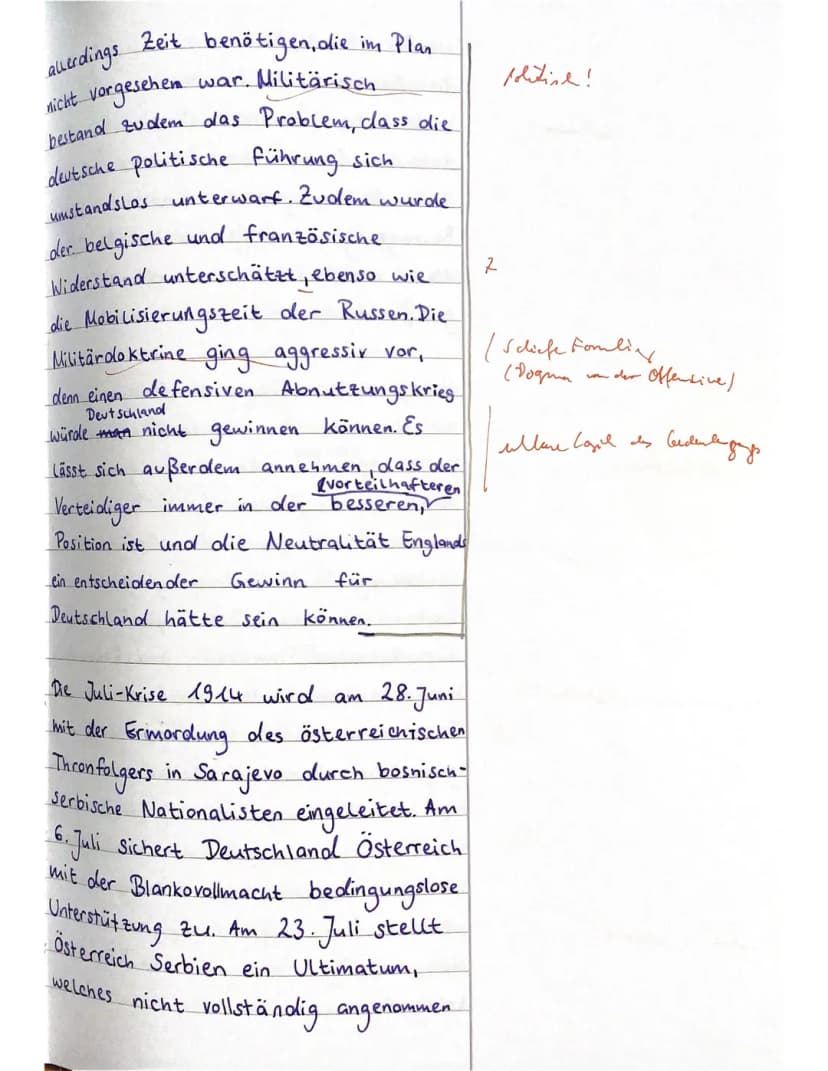 allerdings Zeit benötigen, die im Plan
nicht vorgesehen war. Militärisch
politisch!
bestand zudem das Problem, dass die
deutsche politische Führung sich
umstandslos unterwarf. Zudem wurde
der belgische und französische
Z
Widerstand unterschätzt, ebenso wie
die Mobilisierungszeit der Russen. Die
Militärdoktrine ging aggressiv vor,
(Dogma von der Offensive)
denn einen defensiven Abnutzungskrieg
Deutschland
würde man nicht gewinnen können. Es
lässt sich außerdem annehmen, dass der
vorteilhafteren
Verteidiger immer in der besseren,
Position ist und die Neutralität Englands
ein entscheidender Gewinn für
Deutschland hätte sein können.
Die Juli-Krise 1914 wird am 28. Juni
mit der Ermordung des österreichischen
Thronfolgers in Sarajevo durch bosnisch-
serbische Nationalisten eingeleitet. Am
6. Juli sichert Deutschland Österreich
mit der Blankovollmacht bedingungslose
Unterstützung zu. Am 23. Juli stellt
Österreich Serbien ein Ultimatum,
welches nicht vollständig angenommen